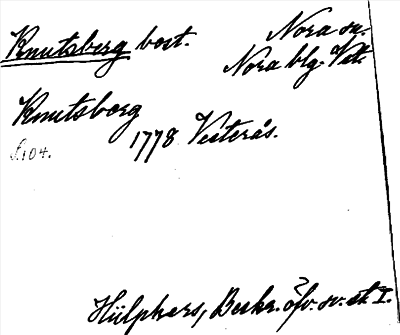 Knutsberg bost. Nora sn.
Nora blg. Vstm.
Knutsborg
1778 Vesterås.
s. 104.
Hülphers, Beskr. öfv. sv. st. I.